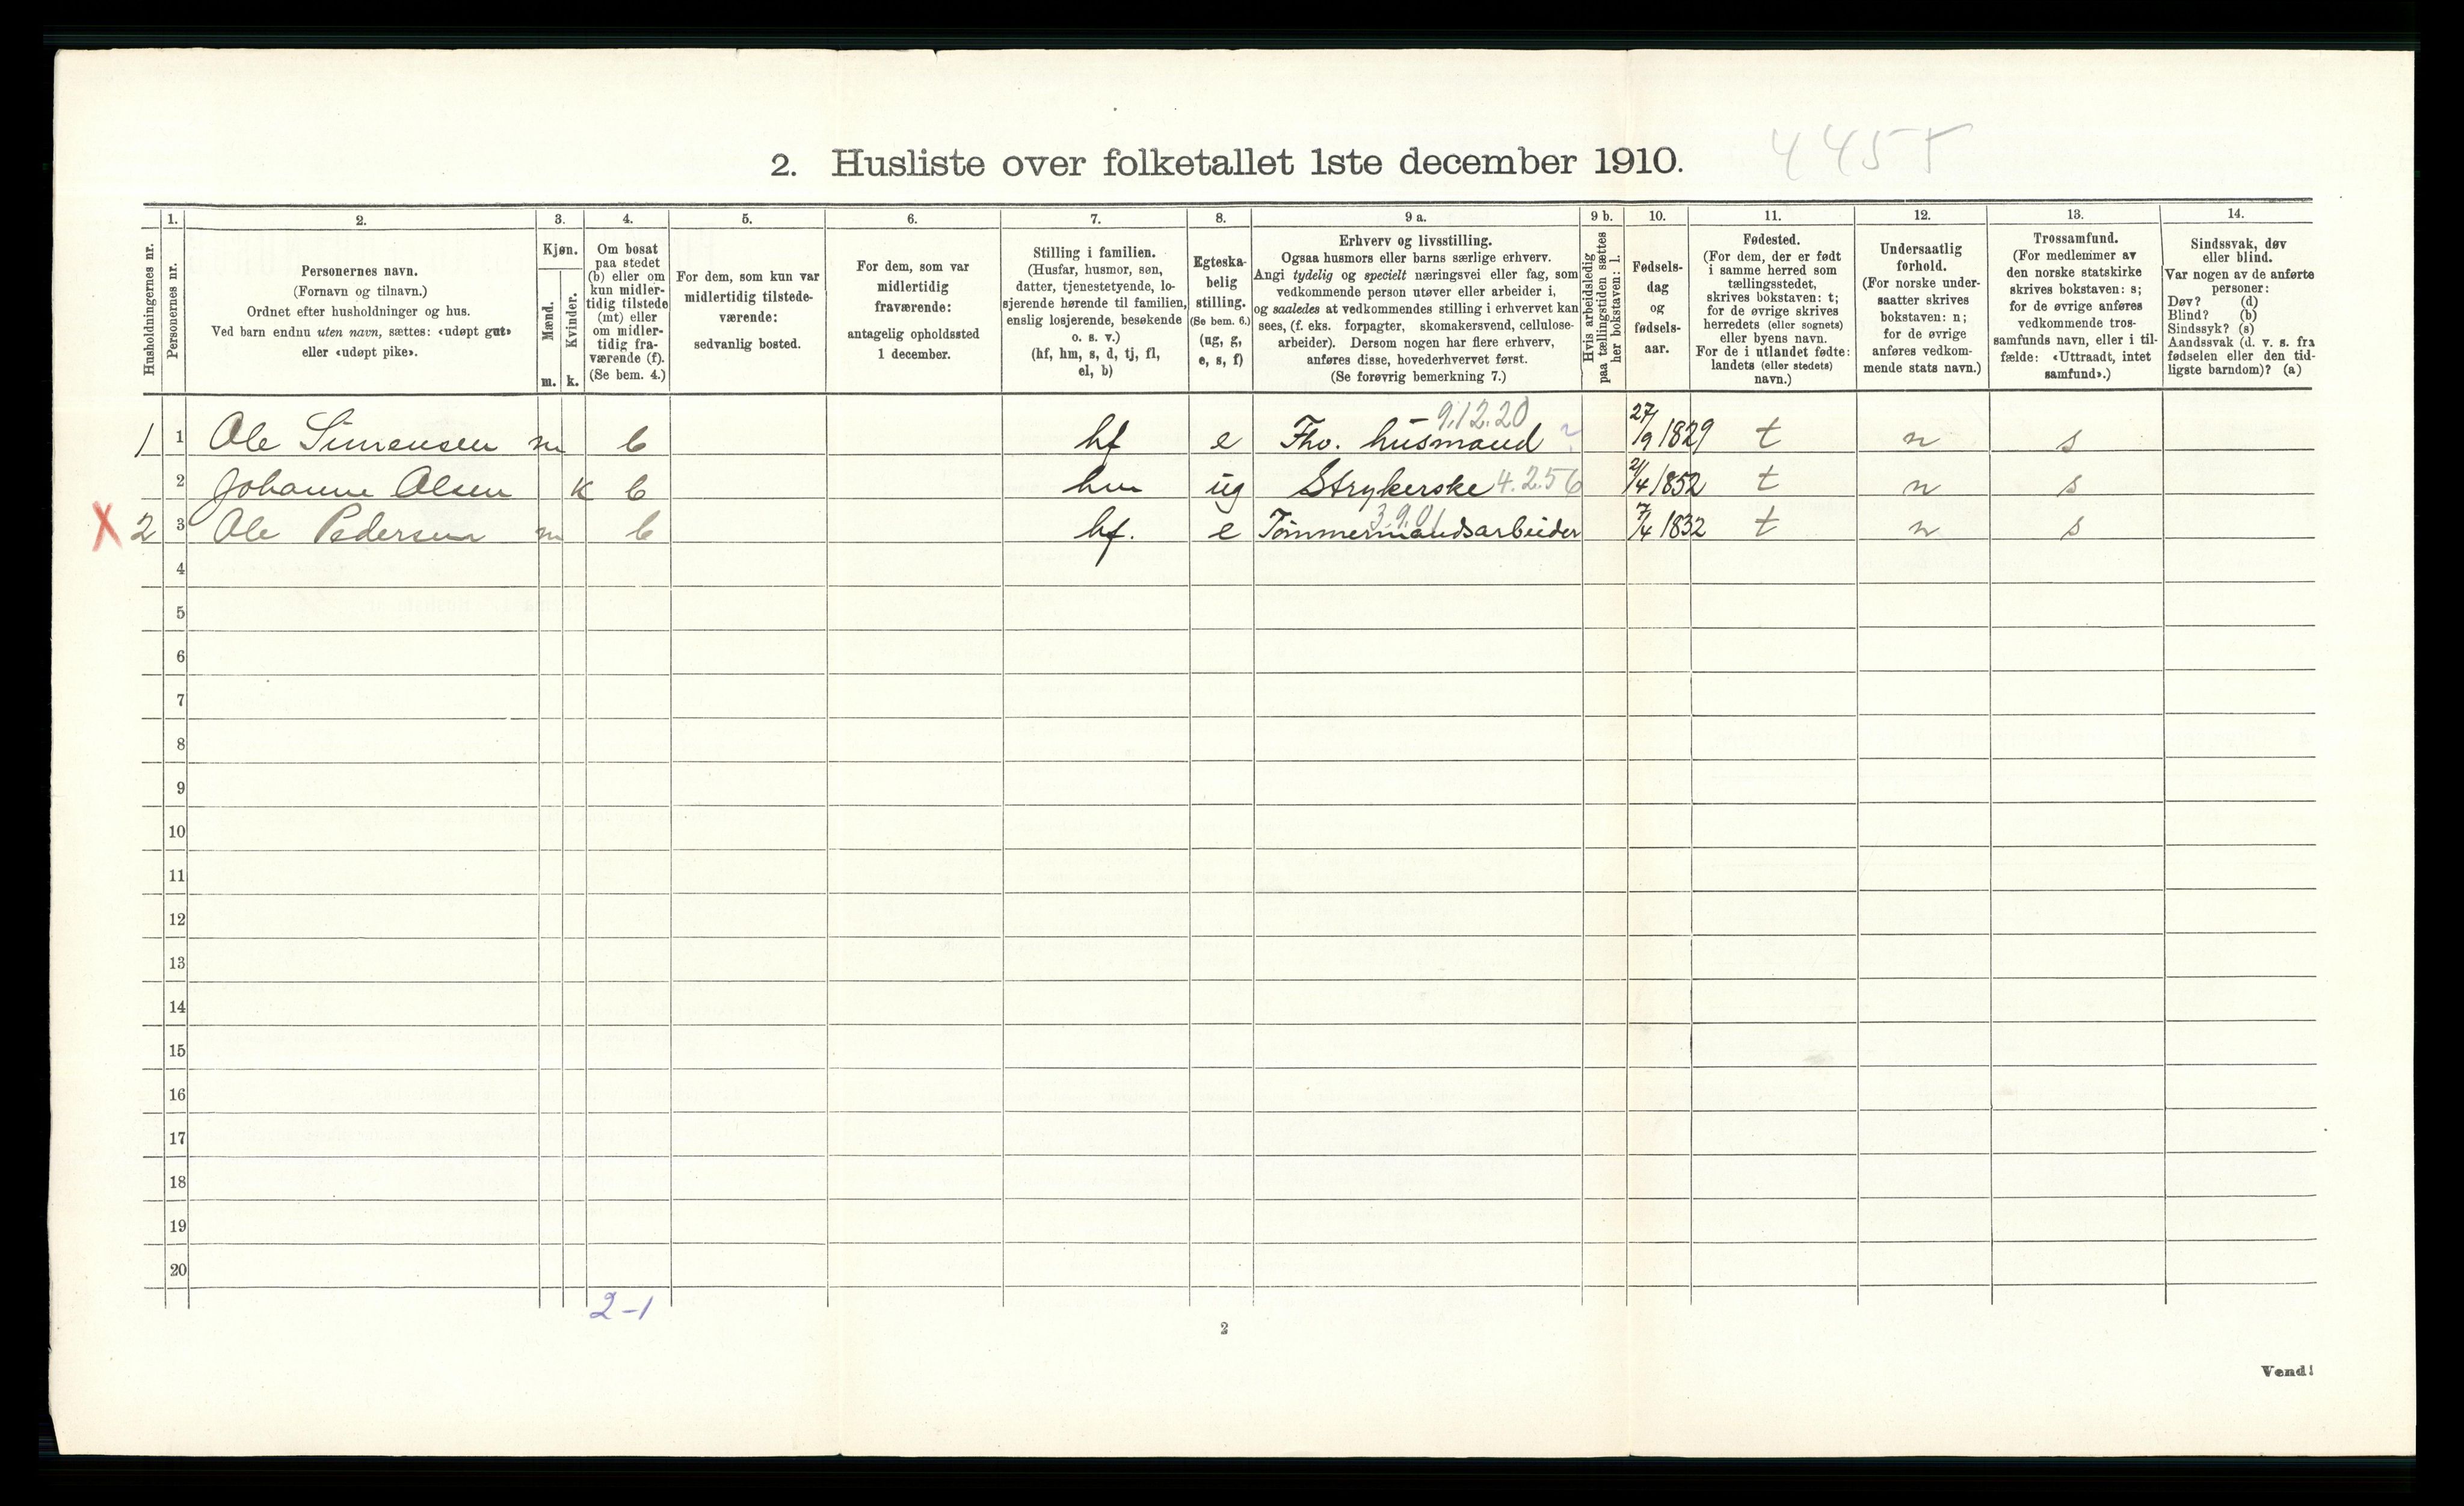 4455
2. Husliste over folketallet 1ste december 1910.
1. 2. 3. 4. 5. 6. 7. 8. 9 a. 9 b. 10. 11. 12. 13. 14.
Husholdningernes nr.
Personernes nr.
Personernes navn.
(Fornavn og tilnavn.)
Ordnet efter husholdninger og hus.
Ved barn endnu uten navn, sættes: «udøpt gut»
eller «udøpt pike».
Kjøn.
Mænd.
Kvinder.
m. k.
Om bosat
paa stedet
(b) eller om
kun midler-
tidig tilstede
(mt) eller
om midler-
tidig fra-
værende (f).
(Se bem. 4.)
For dem, som kun var
midlertidig tilstede-
værende:
sedvanlig bosted.
For dem, som var
midlertidig
fraværende:
antagelig opholdssted
1 december.
Stilling i familien.
(Husfar, husmor, søn,
datter, tjenestetyende, lo-
sjerende hørende til familien,
enslig losjerende, besøkende
o. s. v.)
(hf, hm, s, d, tj, fl,
el, b)
Egteska-
belig
stilling.
(Se bem. 6.)
(ug, g,
e, s, f)
Erhverv og livsstilling.
Ogsaa husmors eller barns særlige erhverv.
Angi tydelig og specielt næringsvei eller fag, som
vedkommende person utøver eller arbeider i,
og saaledes at vedkommendes stilling i erhvervet kan
sees, (f. eks. forpagter, skomakersvend, cellulose-
arbeider). Dersom nogen har flere erhverv,
anføres disse, hovederhvervet først.
(Se forøvrig bemerkning 7.)
Hvis arbeidsledig
paa tællingstiden sættes
her bokstaven: l.
Fødsels-
dag
og
fødsels-
aar.
Fødested.
(For dem, der er født
i samme herred som
tællingsstedet,
skrives bokstaven: t;
for de øvrige skrives
herredets (eller sognets)
eller byens navn.
For de i utlandet fødte:
landets (eller stedets)
navn.)
Undersaatlig
forhold.
(For norske under-
saatter skrives
bokstaven: n;
for de øvrige
anføres vedkom-
mende stats navn.)
Trossamfund.
(For medlemmer av
den norske statskirke
skrives bokstaven: s;
for de øvrige anføres
vedkommende tros-
samfunds navn, eller i til-
fælde: «Uttraadt, intet
samfund».)
Sindssvak, døv
eller blind.
Var nogen av de anførte
personer:
Døv? (d)
Blind? (b)
Sindssyk? (s)
Aandssvak (d. v. s. fra
fødselen eller den tid-
ligste barndom)? (a)
9.12.20
1 1 Ole Simensen m b hf e Fhv. husmand ? 27/9 1829 t n s
2 Johanne Olsen k b hm ug Strykerske 4.2.56 2/4 1852 t n s
3.9.01
X 2 3 Ole Pedersen m b hf. e Tømmermandsarbeider 7/4 1832 t n s
4
5
6
7
8
9
10
11
12
13
14
15
16
17
18
19
20
2-1
2
Vend!